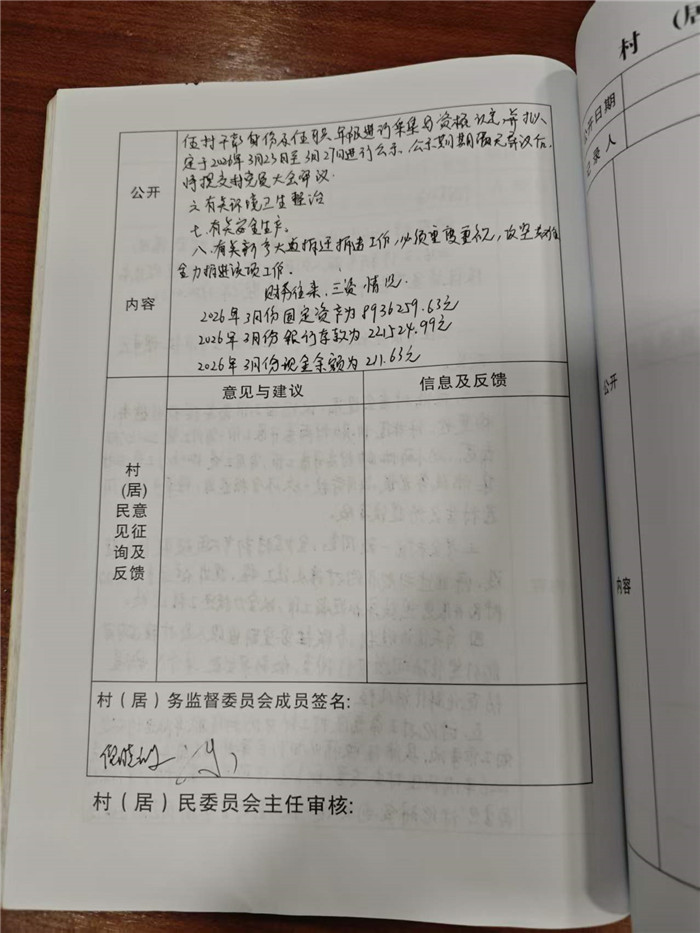 村 （居
公开日期
记录人
任村干部身份及任职年限进行采集与资格认定，并拟
定于2026年3月23日至3月27日进行公示，公示期期满无异议后
将提交村党员大会评议.
六、有关环境卫生整治
七、有关安全生产.
八、有关拆迁工作，必须重要重视，
全力推进该项工作.
公开
内容
财务往来，三资情况.
2026年3月份固定资产为8936259.63元
2026年3月份银行存款为221524.99元
2026年3月份现金余额为211.63元
意见与建议
信息及反馈
村
(居)
民意
见征
询及
反馈
公开
内容
村（居）务监督委员会成员签名:
村（居）民委员会主任审核: